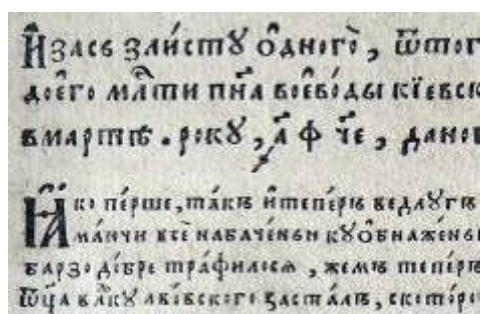 И҆ засъ злистꙋ ѻ҆дного̀, ѿтог
доег҆о млⷭ҇ти пн҃а воево́ды кїевск
вмартѣ. рокꙋ, ҂а҃ ф че҃, дано
Ꙗ҆ко пе́рше, та́къ и҆ тепе́ръ ведлꙋгъ
ма́ючи всѐ набаче́ньи кꙋ ѻ҆бнаже́ньи
барзо до́бре тра́филося, жемъ тепе́ръ
ѿц҃а вл҃кꙋ лво́вского засталъ, скоторо